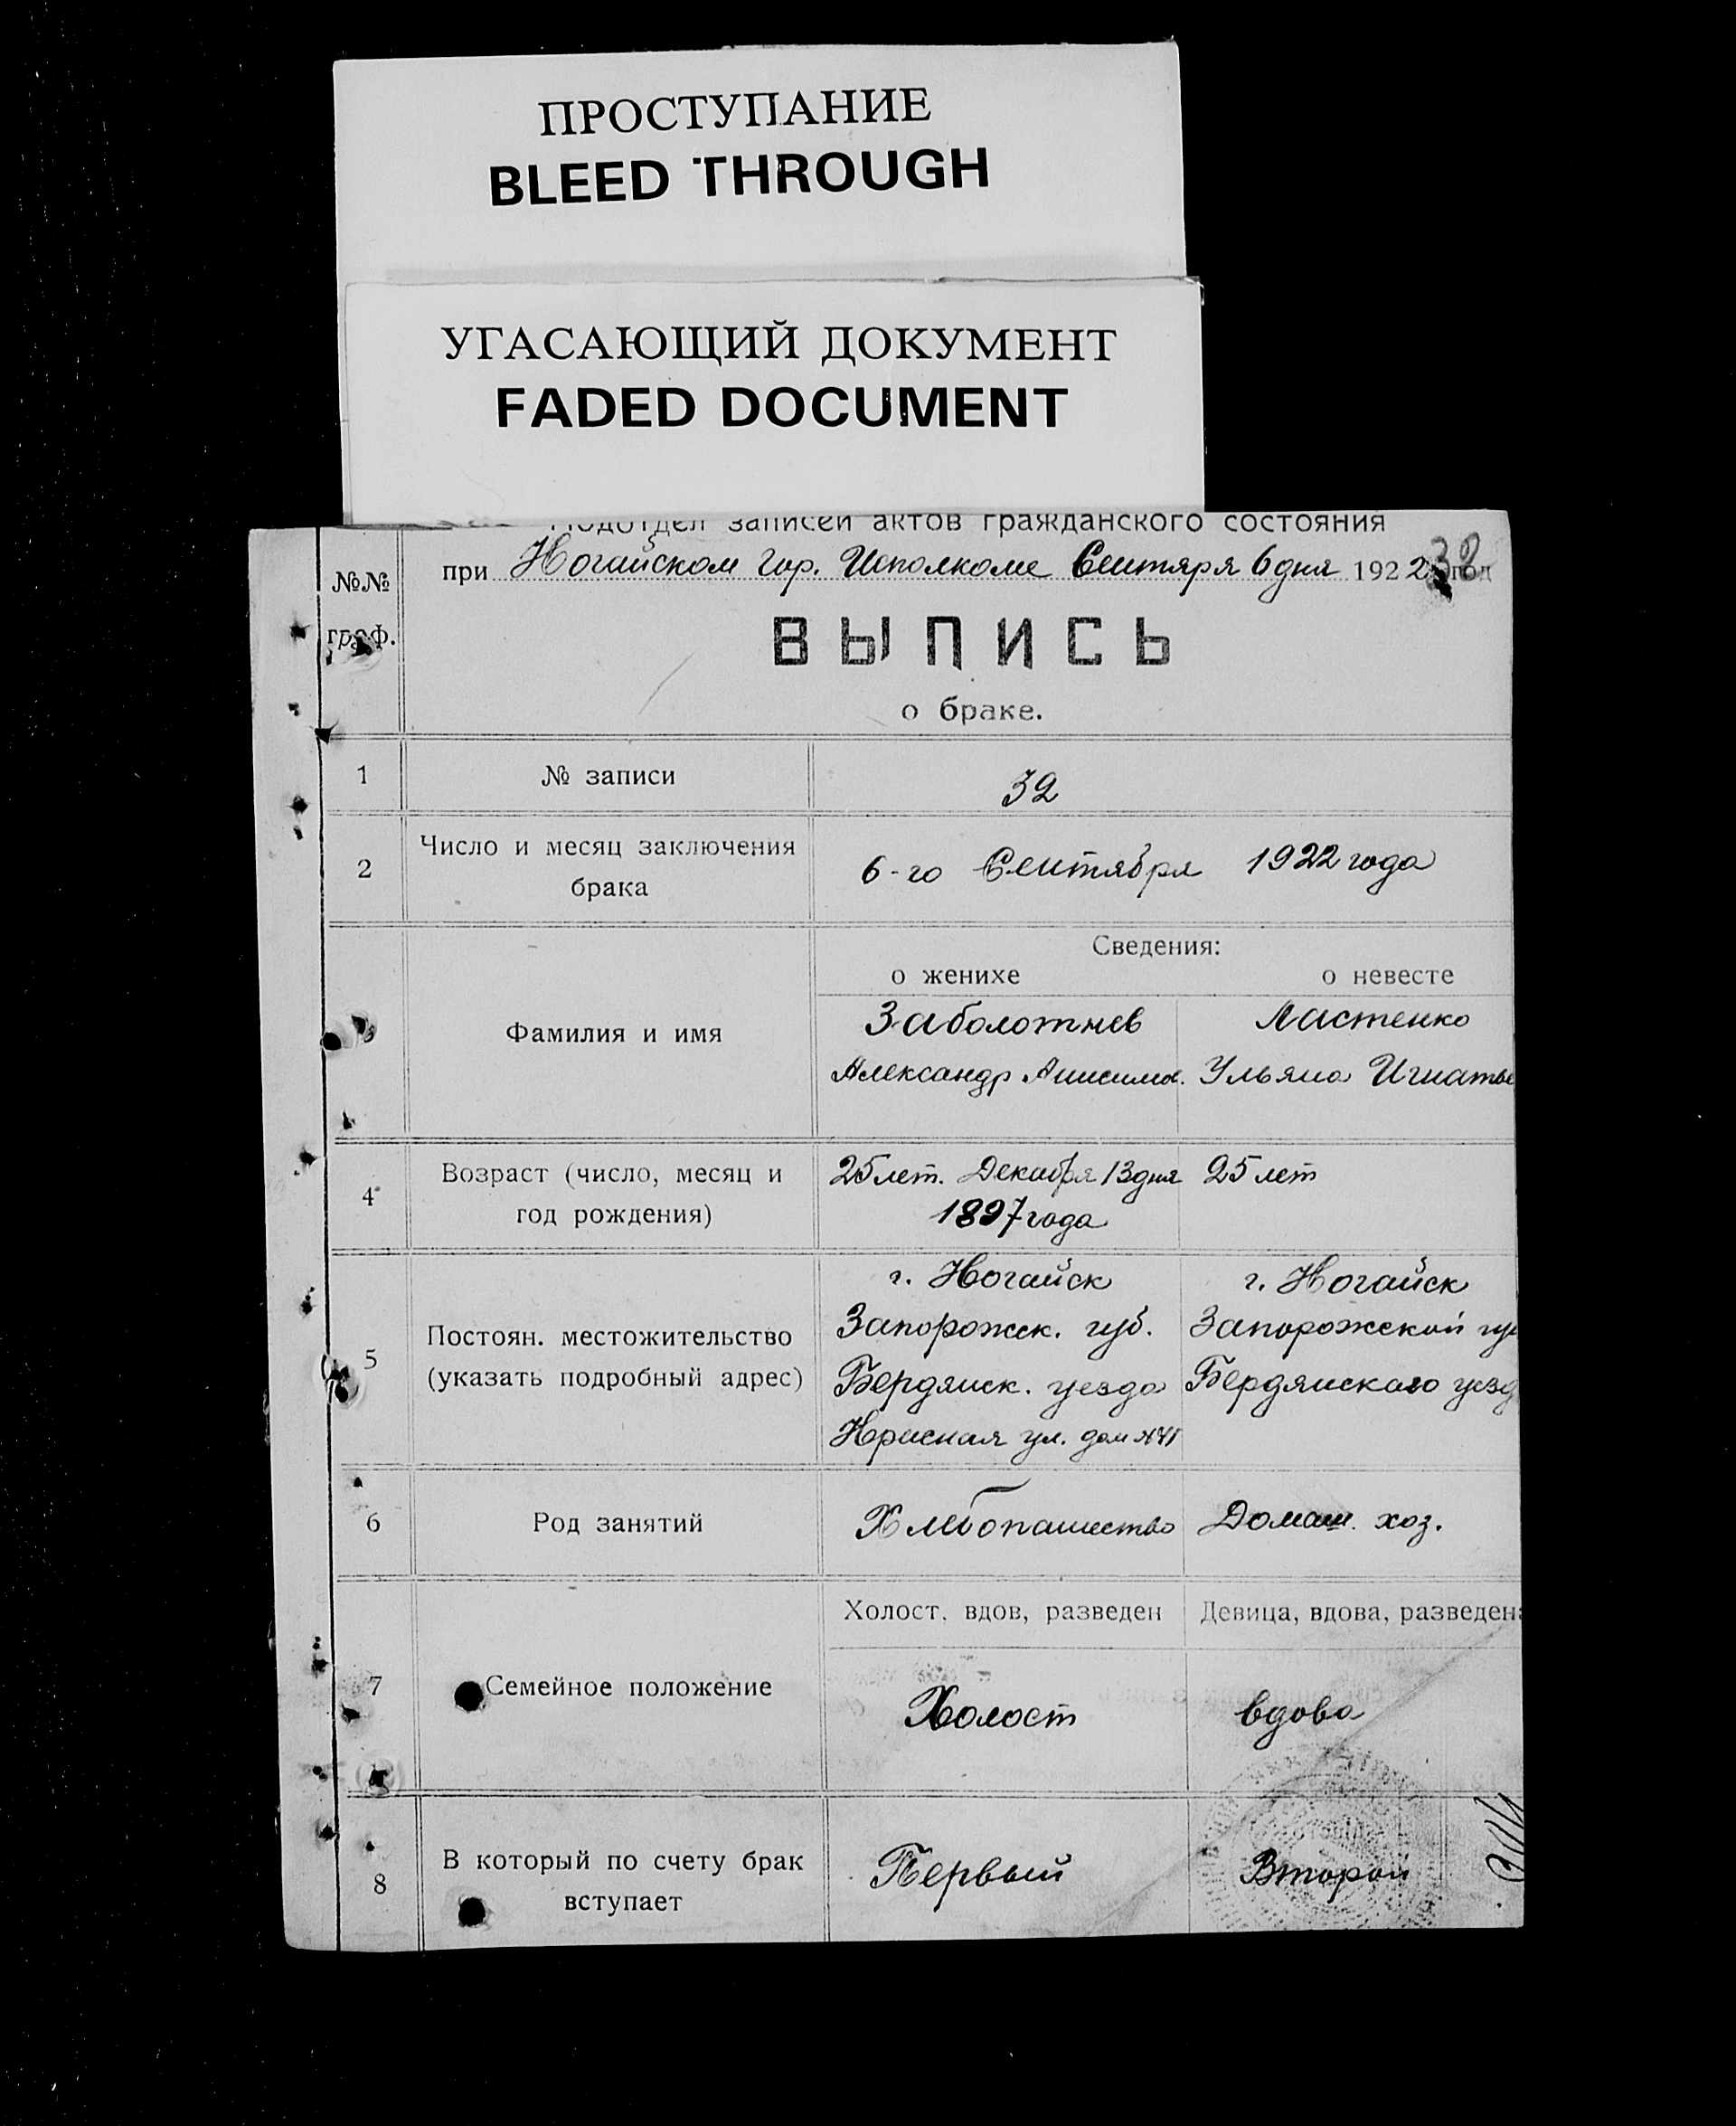 ПРОСТУПАНИЕ
BLEED THROUGH
УГАСАЮЩИЙ ДОКУМЕНТ
FADED DOCUMENT
Подотдел записей актов гражданского состояния
№№ граф.
при Ногайском Гор. Исполкоме Сентяря 6 дня 1922 год
32
ВЫПИСЬ
о браке.
1 № записи 32
2 Число и месяц заключения брака 6-го Сентября 1922 года
Сведения:
о женихе о невесте
Фамилия и имя
Заболотнев Ластенко
Александр Анисимов. Ульяна Игнатье
4 Возраст (число, месяц и год рождения)
25 лет. Декабря 13 дня 25 лет
1897 года
5 Постоян. местожительство (указать подробный адрес)
г. Ногайск г. Ногайск
Запорожск. губ. Запорожской гу
Бердянск. уезда Бердянскаго уезд
Красная ул. дом
6 Род занятий Хлебопашество Домаш. хоз.
Холост, вдов, разведен Девица, вдова, разведена
7 Семейное положение Холост вдова
8 В который по счету брак вступает Первый Второй